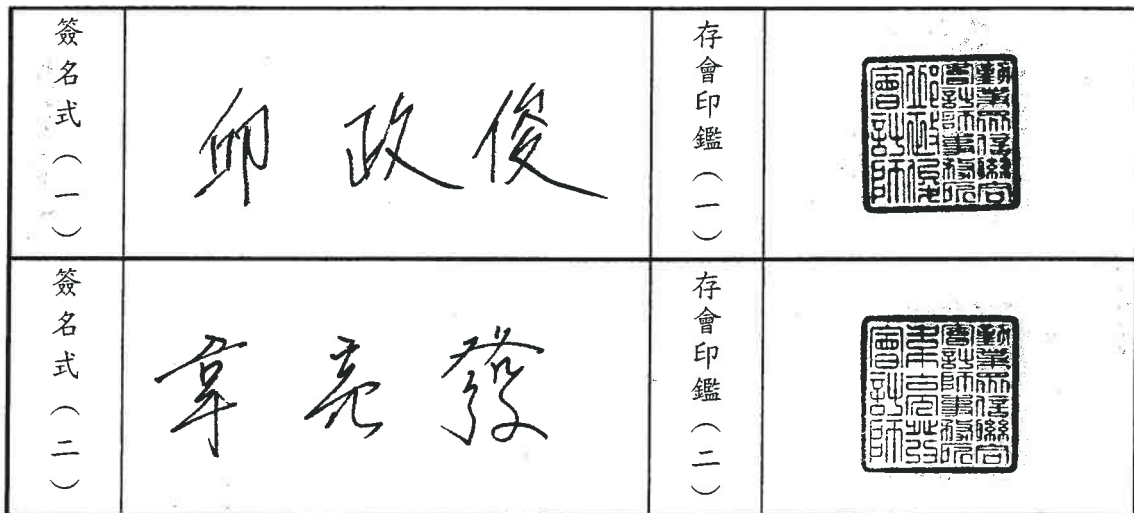 簽名式(一)
邱政俊
存會印鑑(一)
勤業眾信聯合
會計師事務所
邱政俊
會計師
簽名式(二)
韋亮發
存會印鑑(二)
勤業眾信聯合
會計師事務所
韋亮發
會計師